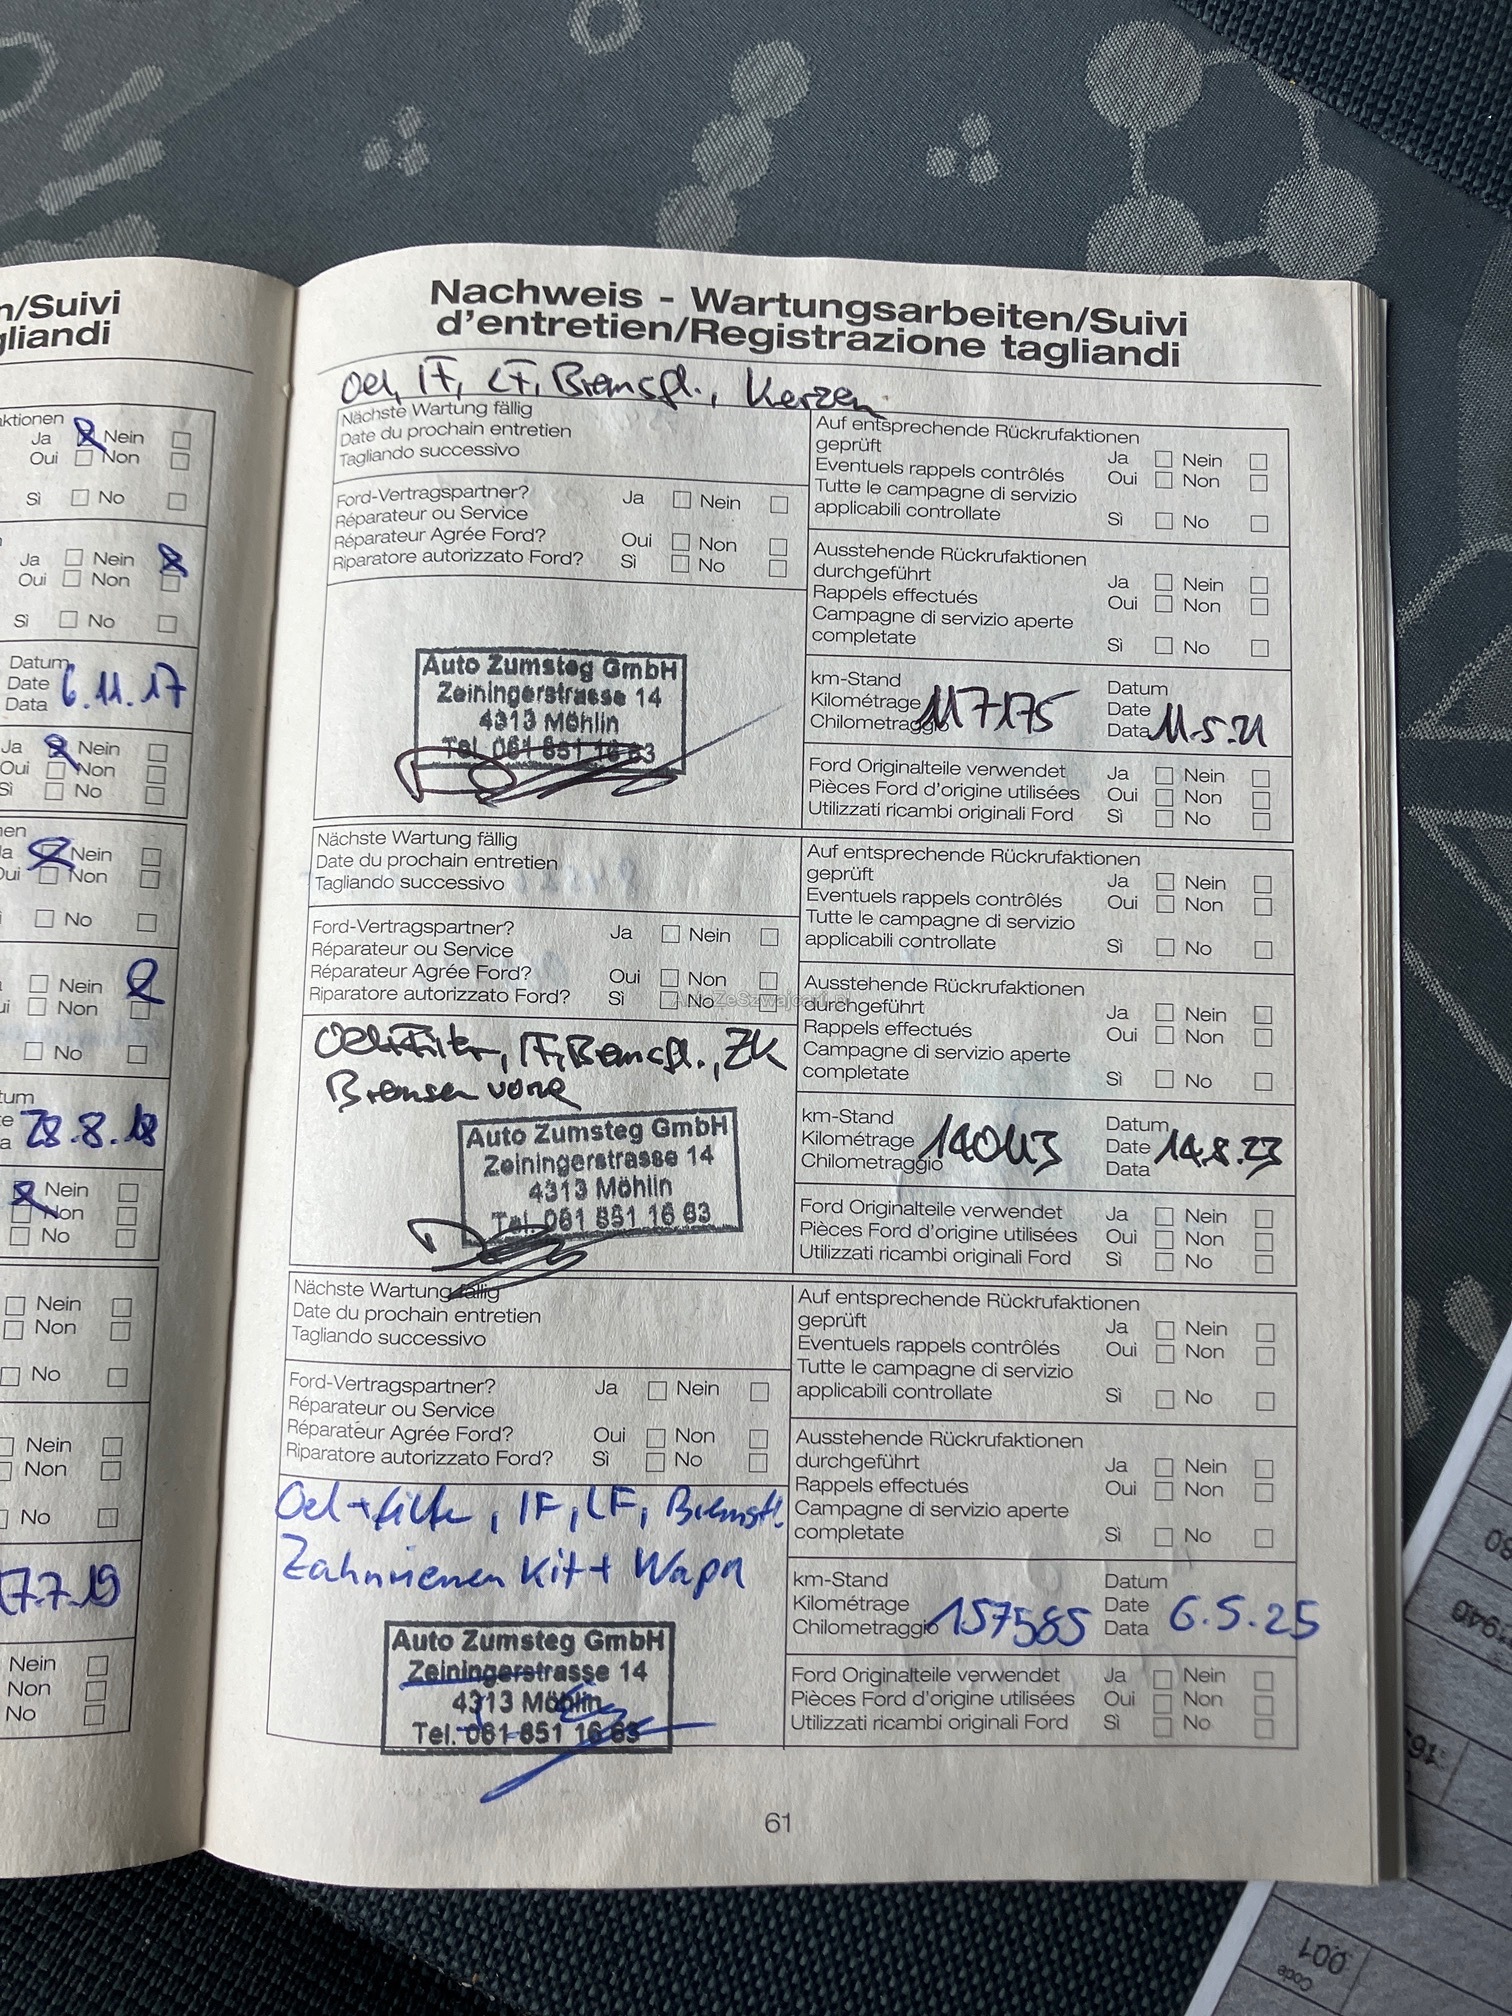 n/Suivi
gliandi
aktionen
Ja Nein
Oui Non
Sì No
Ja Nein
Oui Non
Sì No
Datum
Date 6.11.17
Data
Ja Nein
Oui Non
Sì No
nen
Ja Nein
Oui Non
No
Nein
Non
No
tum
te 28.8.18
a
Nein
Non
No
Nein
Non
No
Nein
Non
No
17.7.19
Nein
Non
No
Nachweis - Wartungsarbeiten/Suivi
d'entretien/Registrazione tagliandi
Oel, IF, LF, Bremsfl., Kerzen
Nächste Wartung fällig
Date du prochain entretien
Tagliando successivo
Ford-Vertragspartner? Ja Nein
Réparateur ou Service
Réparateur Agrée Ford? Oui Non
Riparatore autorizzato Ford? Sì No
Auto Zumsteg GmbH
Zeiningerstrasse 14
4313 Möhlin
Tel. 061 851 16 63
Auf entsprechende Rückrufaktionen
geprüft Ja Nein
Eventuels rappels contrôlés Oui Non
Tutte le campagne di servizio
applicabili controllate Sì No
Ausstehende Rückrufaktionen
durchgeführt Ja Nein
Rappels effectués Oui Non
Campagne di servizio aperte
completate Sì No
km-Stand Datum
Kilométrage 117175 Date 11.5.21
Chilometraggio Data
Ford Originalteile verwendet Ja Nein
Pièces Ford d'origine utilisées Oui Non
Utilizzati ricambi originali Ford Sì No
Nächste Wartung fällig
Date du prochain entretien
Tagliando successivo
Ford-Vertragspartner? Ja Nein
Réparateur ou Service
Réparateur Agrée Ford? Oui Non
Riparatore autorizzato Ford? Sì No
Oel+Filter, IF, Bremsfl., ZK
Bremsen vorne
Auto Zumsteg GmbH
Zeiningerstrasse 14
4313 Möhlin
Tel. 061 851 16 63
Auf entsprechende Rückrufaktionen
geprüft Ja Nein
Eventuels rappels contrôlés Oui Non
Tutte le campagne di servizio
applicabili controllate Sì No
Ausstehende Rückrufaktionen
durchgeführt Ja Nein
Rappels effectués Oui Non
Campagne di servizio aperte
completate Sì No
km-Stand Datum
Kilométrage 14043 Date 14.8.23
Chilometraggio Data
Ford Originalteile verwendet Ja Nein
Pièces Ford d'origine utilisées Oui Non
Utilizzati ricambi originali Ford Sì No
Nächste Wartung fällig
Date du prochain entretien
Tagliando successivo
Ford-Vertragspartner? Ja Nein
Réparateur ou Service
Réparateur Agrée Ford? Oui Non
Riparatore autorizzato Ford? Sì No
Oel + filter, IF, LF, Bremsfl.
Zahnriemen Kit + Wapu
Auto Zumsteg GmbH
Zeiningerstrasse 14
4313 Möhlin
Tel. 061 851 16 63
Auf entsprechende Rückrufaktionen
geprüft Ja Nein
Eventuels rappels contrôlés Oui Non
Tutte le campagne di servizio
applicabili controllate Sì No
Ausstehende Rückrufaktionen
durchgeführt Ja Nein
Rappels effectués Oui Non
Campagne di servizio aperte
completate Sì No
km-Stand Datum
Kilométrage 157585 Date 6.5.25
Chilometraggio Data
Ford Originalteile verwendet Ja Nein
Pièces Ford d'origine utilisées Oui Non
Utilizzati ricambi originali Ford Sì No
61
Code
001